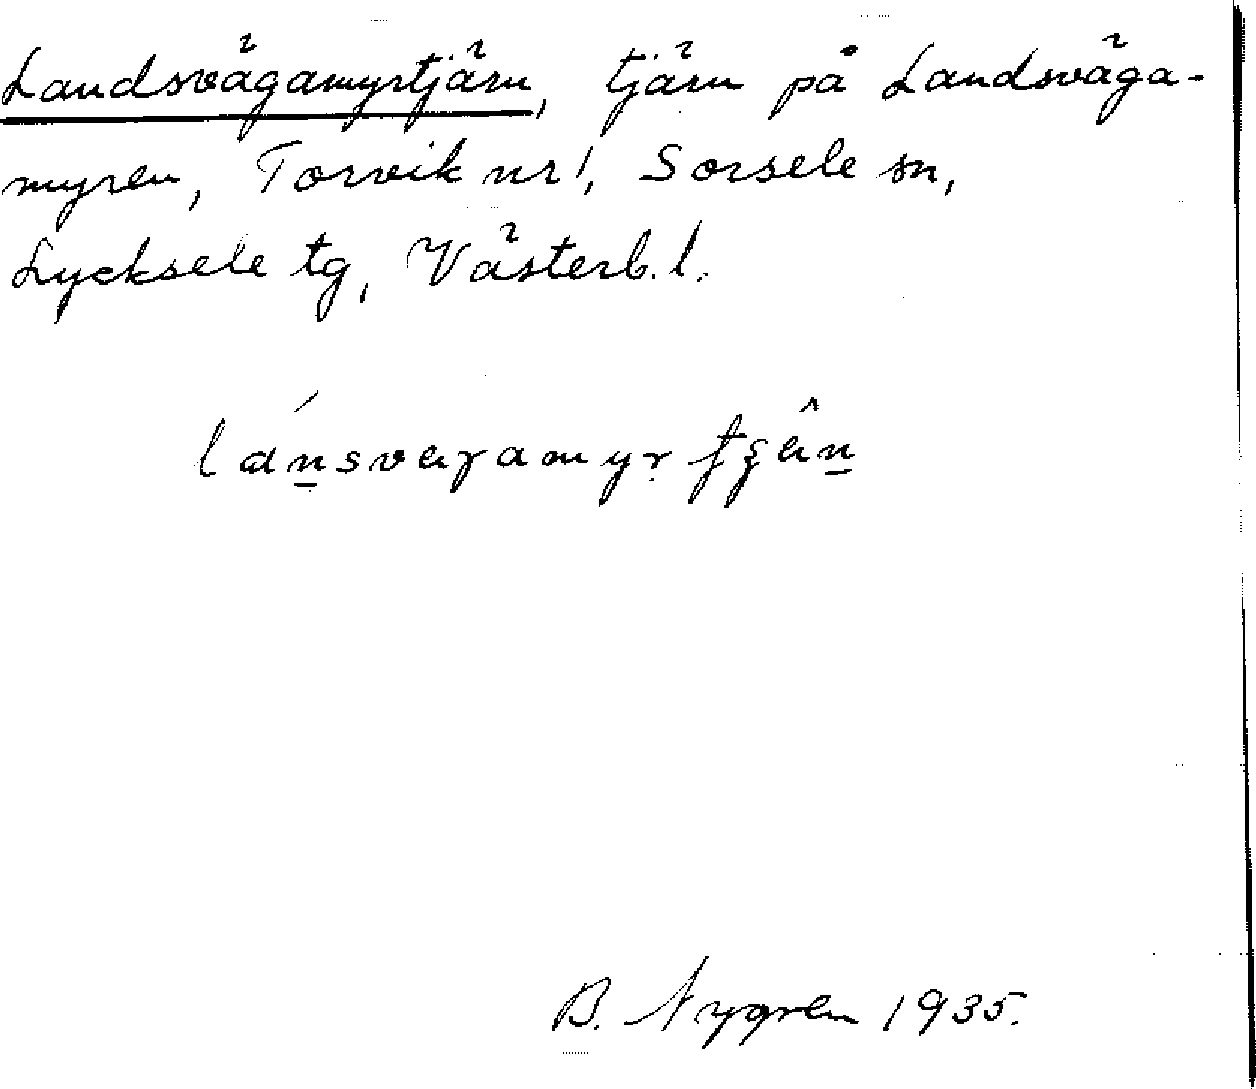 Landsvägamyrtjärn, tjärn på Landsväga-
myren, Torvik nr 1, Sorsele sn,
Lycksele tg, Västerb. l.
B. Nygren 1935.